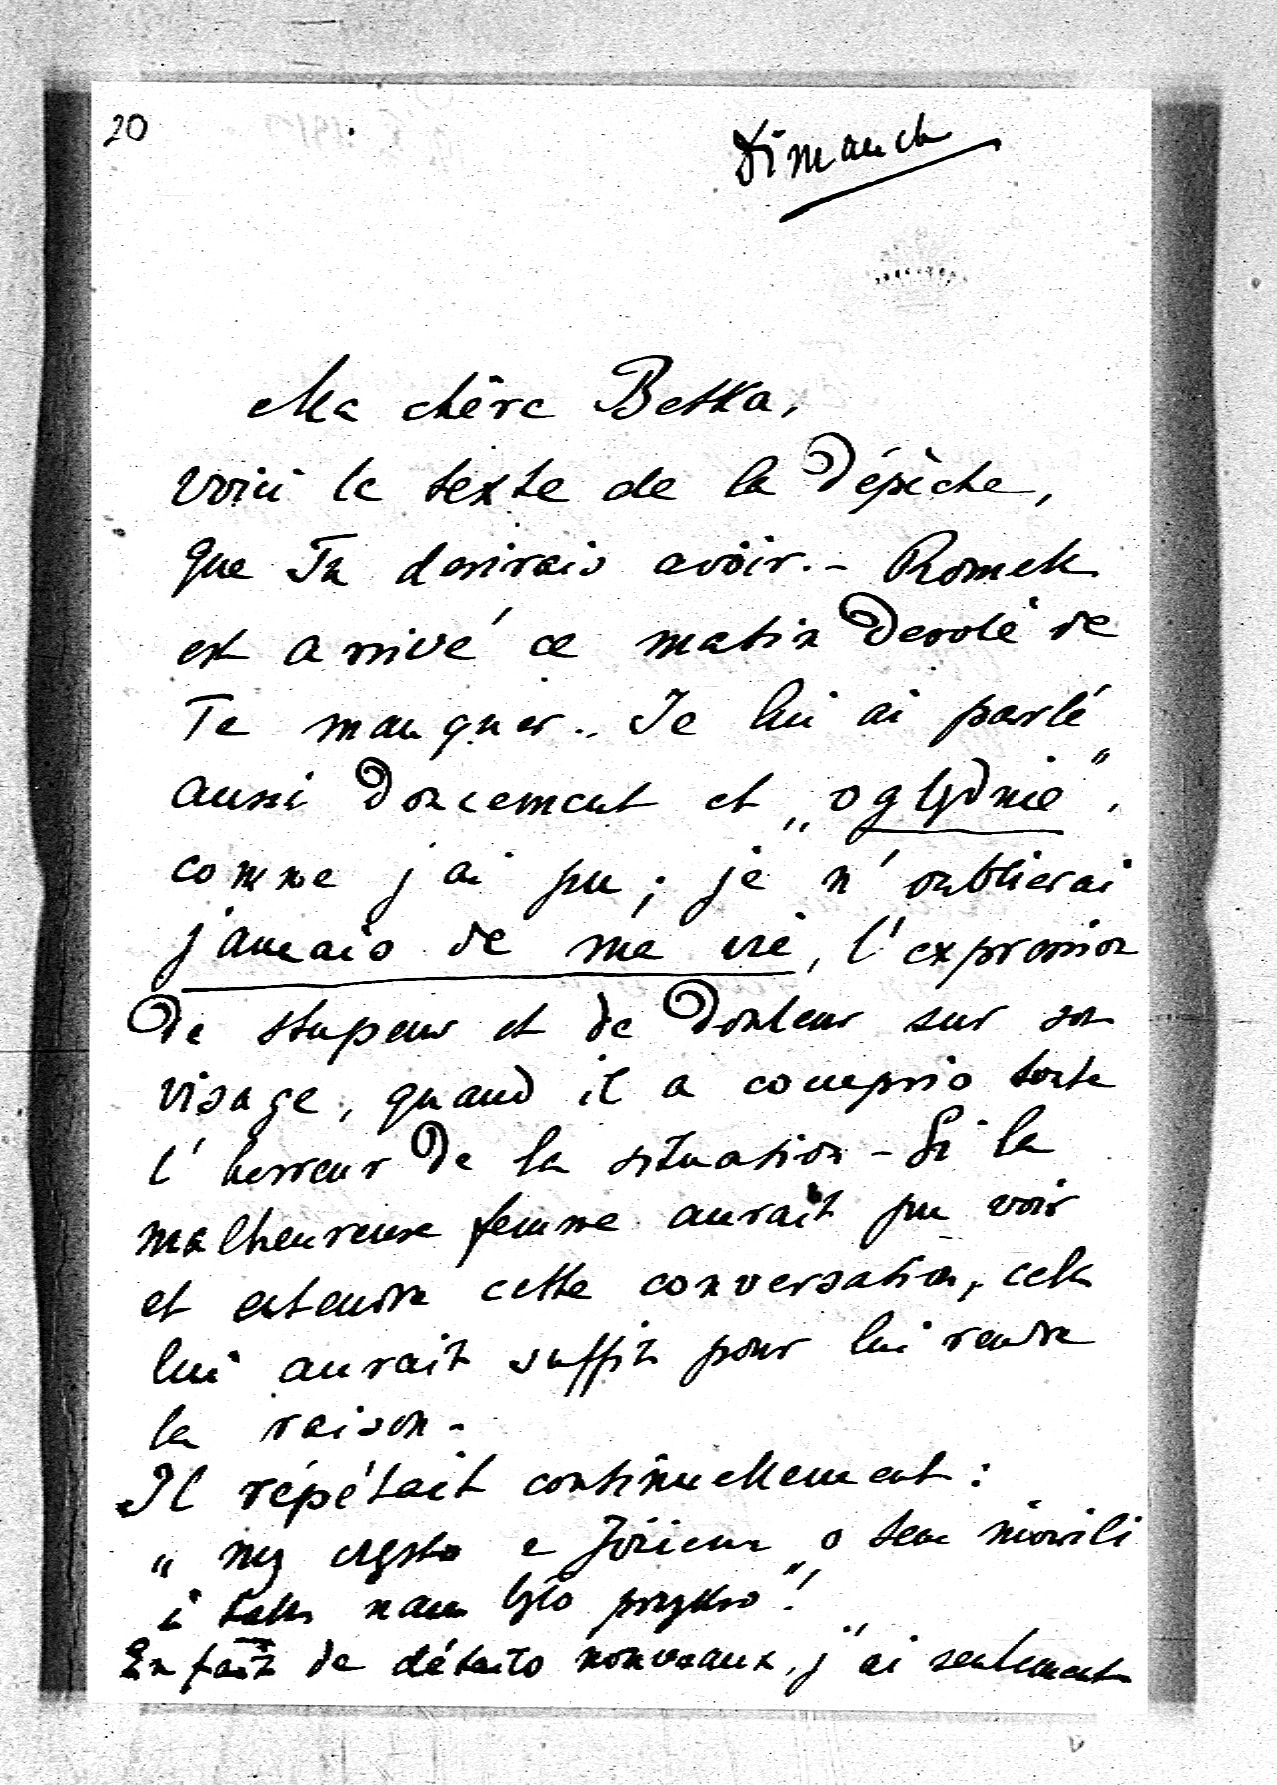 20
Dimanche
Ma chère Betka,
voici le texte de la Dépèche,
que Tu desirais avoir. - Romek
est arrivé ce matin Desolé de
Te manquer.. Je lui ai parlé
aussi Doucement et „oględnie",
comme j'ai pu; je n'oublierai
jamais de ma vie, l'expression
De stupeur et de Douleur sur son
visage, quand il a compris toute
l'horreur De la situation - Si la
malheureuse femme aurait pu voir
et entendre cette conversation, cela
lui aurait suffit pour lui rendre
la raison -
Il répétait continuellement:
„my często z Józiem o tem mówili
i tak nam było przykro"!
En fait de détails nouveaux, j'ai seulement